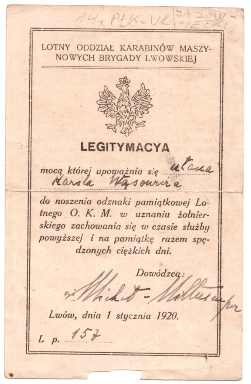 LOTNY ODDZIAŁ KARABINÓW MASZY-
NOWYCH BRYGADY LWOWSKIEJ
LEGITYMACYA
mocą której upoważnia się ułana
Karola Wąsowicza
do noszenia odznaki pamiątkowej Lo-
tnego O. K. M. w uznaniu żołnier-
skiego zachowania się w czasie służby
powyższej i na pamiątkę razem spę-
dzonych ciężkich dni.
Dowódzca:
Lwów, dnia 1 stycznia 1920.
L. p. 157